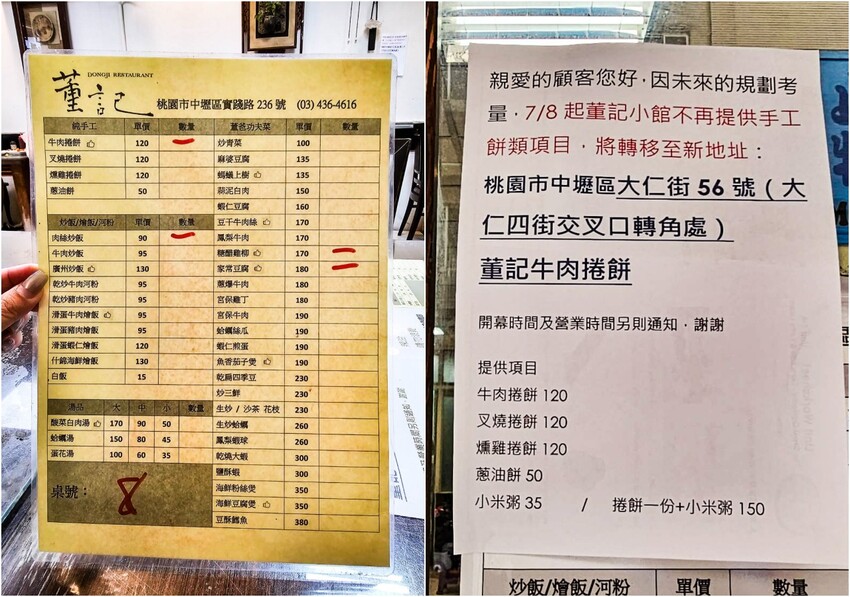 董記
DONGJI RESTAURANT
桃園市中壢區實踐路 236 號 (03) 436-4616
純手工 單價 數量
牛肉捲餅 120 一
叉燒捲餅 120
燻雞捲餅 120
蔥油餅 50
炒飯/燴飯/河粉 單價 數量
肉絲炒飯 90 一
牛肉炒飯 95
廣州炒飯 130
乾炒牛肉河粉 95
乾炒豬肉河粉 95
滑蛋牛肉燴飯 95
滑蛋豬肉燴飯 95
滑蛋蝦仁燴飯 120
什錦海鮮燴飯 130
白飯 15
湯品 大 中 小 數量
酸菜白肉湯 170 90 50
蛤蠣湯 150 80 45
蛋花湯 100 60 35
桌號: 8
董爸功夫菜 單價 數量
炒青菜 100
麻婆豆腐 135
螞蟻上樹 135
蒜泥白肉 150
蝦仁豆腐 160
豆干牛肉絲 170
鳳梨牛肉 170
糖醋雞柳 170 一
家常豆腐 180 一
蔥爆牛肉 180
宮保雞丁 180
宮保牛肉 190
蛤蠣絲瓜 190
蝦仁煎蛋 190
魚香茄子煲 190
乾扁四季豆 230
炒三鮮 230
生炒 / 沙茶 花枝 230
生炒蛤蠣 260
鳳梨蝦球 260
乾燒大蝦 300
鹽酥蝦 300
海鮮粉絲煲 350
海鮮豆腐煲 350
豆酥鱈魚 380
親愛的顧客您好，因未來的規劃考
量，7/8 起董記小館不再提供手工
餅類項目，將轉移至新地址：
桃園市中壢區大仁街 56 號（大
仁四街交叉口轉角處）
董記牛肉捲餅
開幕時間及營業時間另則通知，謝謝
提供項目
牛肉捲餅 120
叉燒捲餅 120
燻雞捲餅 120
蔥油餅 50
小米粥 35 / 捲餅一份+小米粥 150
炒飯/燴飯/河粉 單價 數量